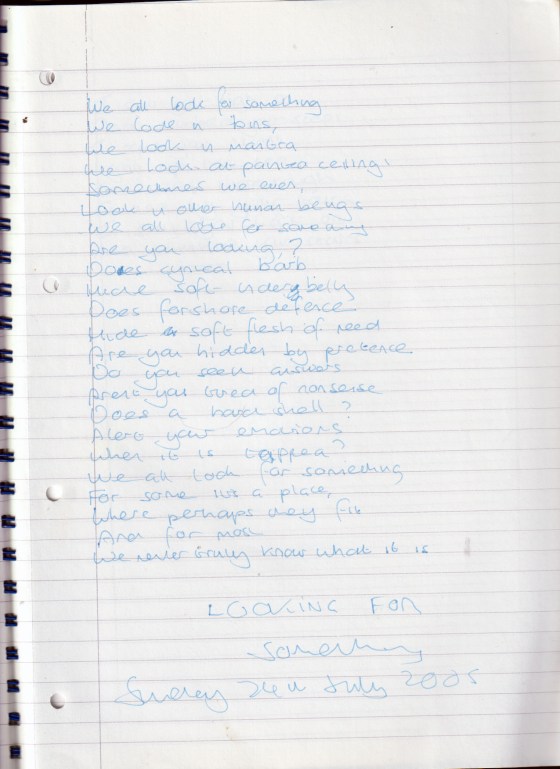 We all look for something
We look in
We look in mantra
We look at painted ceiling,
Sometimes we even,
Look in other human beings
We all look for something
Are you looking?
Does cynical barb
Hide soft underbelly
Does forshore defence
Hide soft flesh of need
Are you hidden by pretence
Do you seek answers
Arent you tired of nonsense
Does a hard shell?
Alert your emotions
When it is tapped?
We all look for something
For some its a place,
Where perhaps they fit
And for most
We never truly know what it is
LOOKING FOR
Something
Sunday 24th July 2005